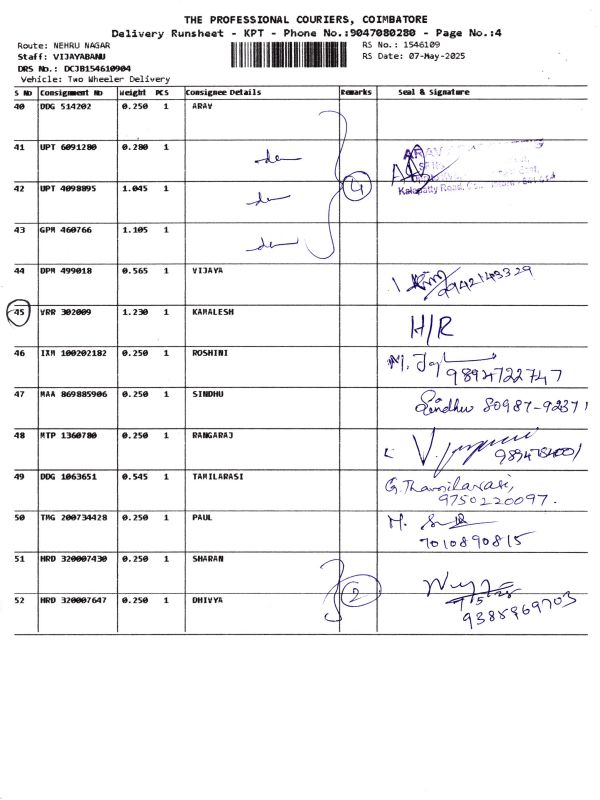 THE PROFESSIONAL COURIERS, COIMBATORE
Delivery Runsheet - KPT - Phone No.:9047080280 - Page No.:4
Route: NEHRU NAGAR RS No.: 1546109
Staff: VIJAYABANU RS Date: 07-May-2025
DRS No.: DCJB154610904
Vehicle: Two Wheeler Delivery
S No Consignment No Weight PCS Consignee Details Remarks Seal & Signature
40 DDG 514202 0.250 1 ARAV
41 UPT 6091280 0.280 1
42 UPT 4098895 1.045 1 4
Kalapatty Road,
43 GPM 460766 1.105 1
44 DPM 499018 0.565 1 VIJAYA
9942143329
45 VRR 302009 1.230 1 KAMALESH
H/R
46 IXM 100202182 0.250 1 ROSHINI
9894722747
47 MAA 869885906 0.250 1 SINDHU
Sindhu 80987-92371
48 MTP 1360780 0.250 1 RANGARAJ
49 DDG 1063651 0.545 1 TAMILARASI
G. Thamilarasi,
9750220097.
50 TMG 200734428 0.250 1 PAUL
7010890815
51 HRD 320007430 0.250 1 SHARAN
52 HRD 320007647 0.250 1 DHIVYA 2
9388969703